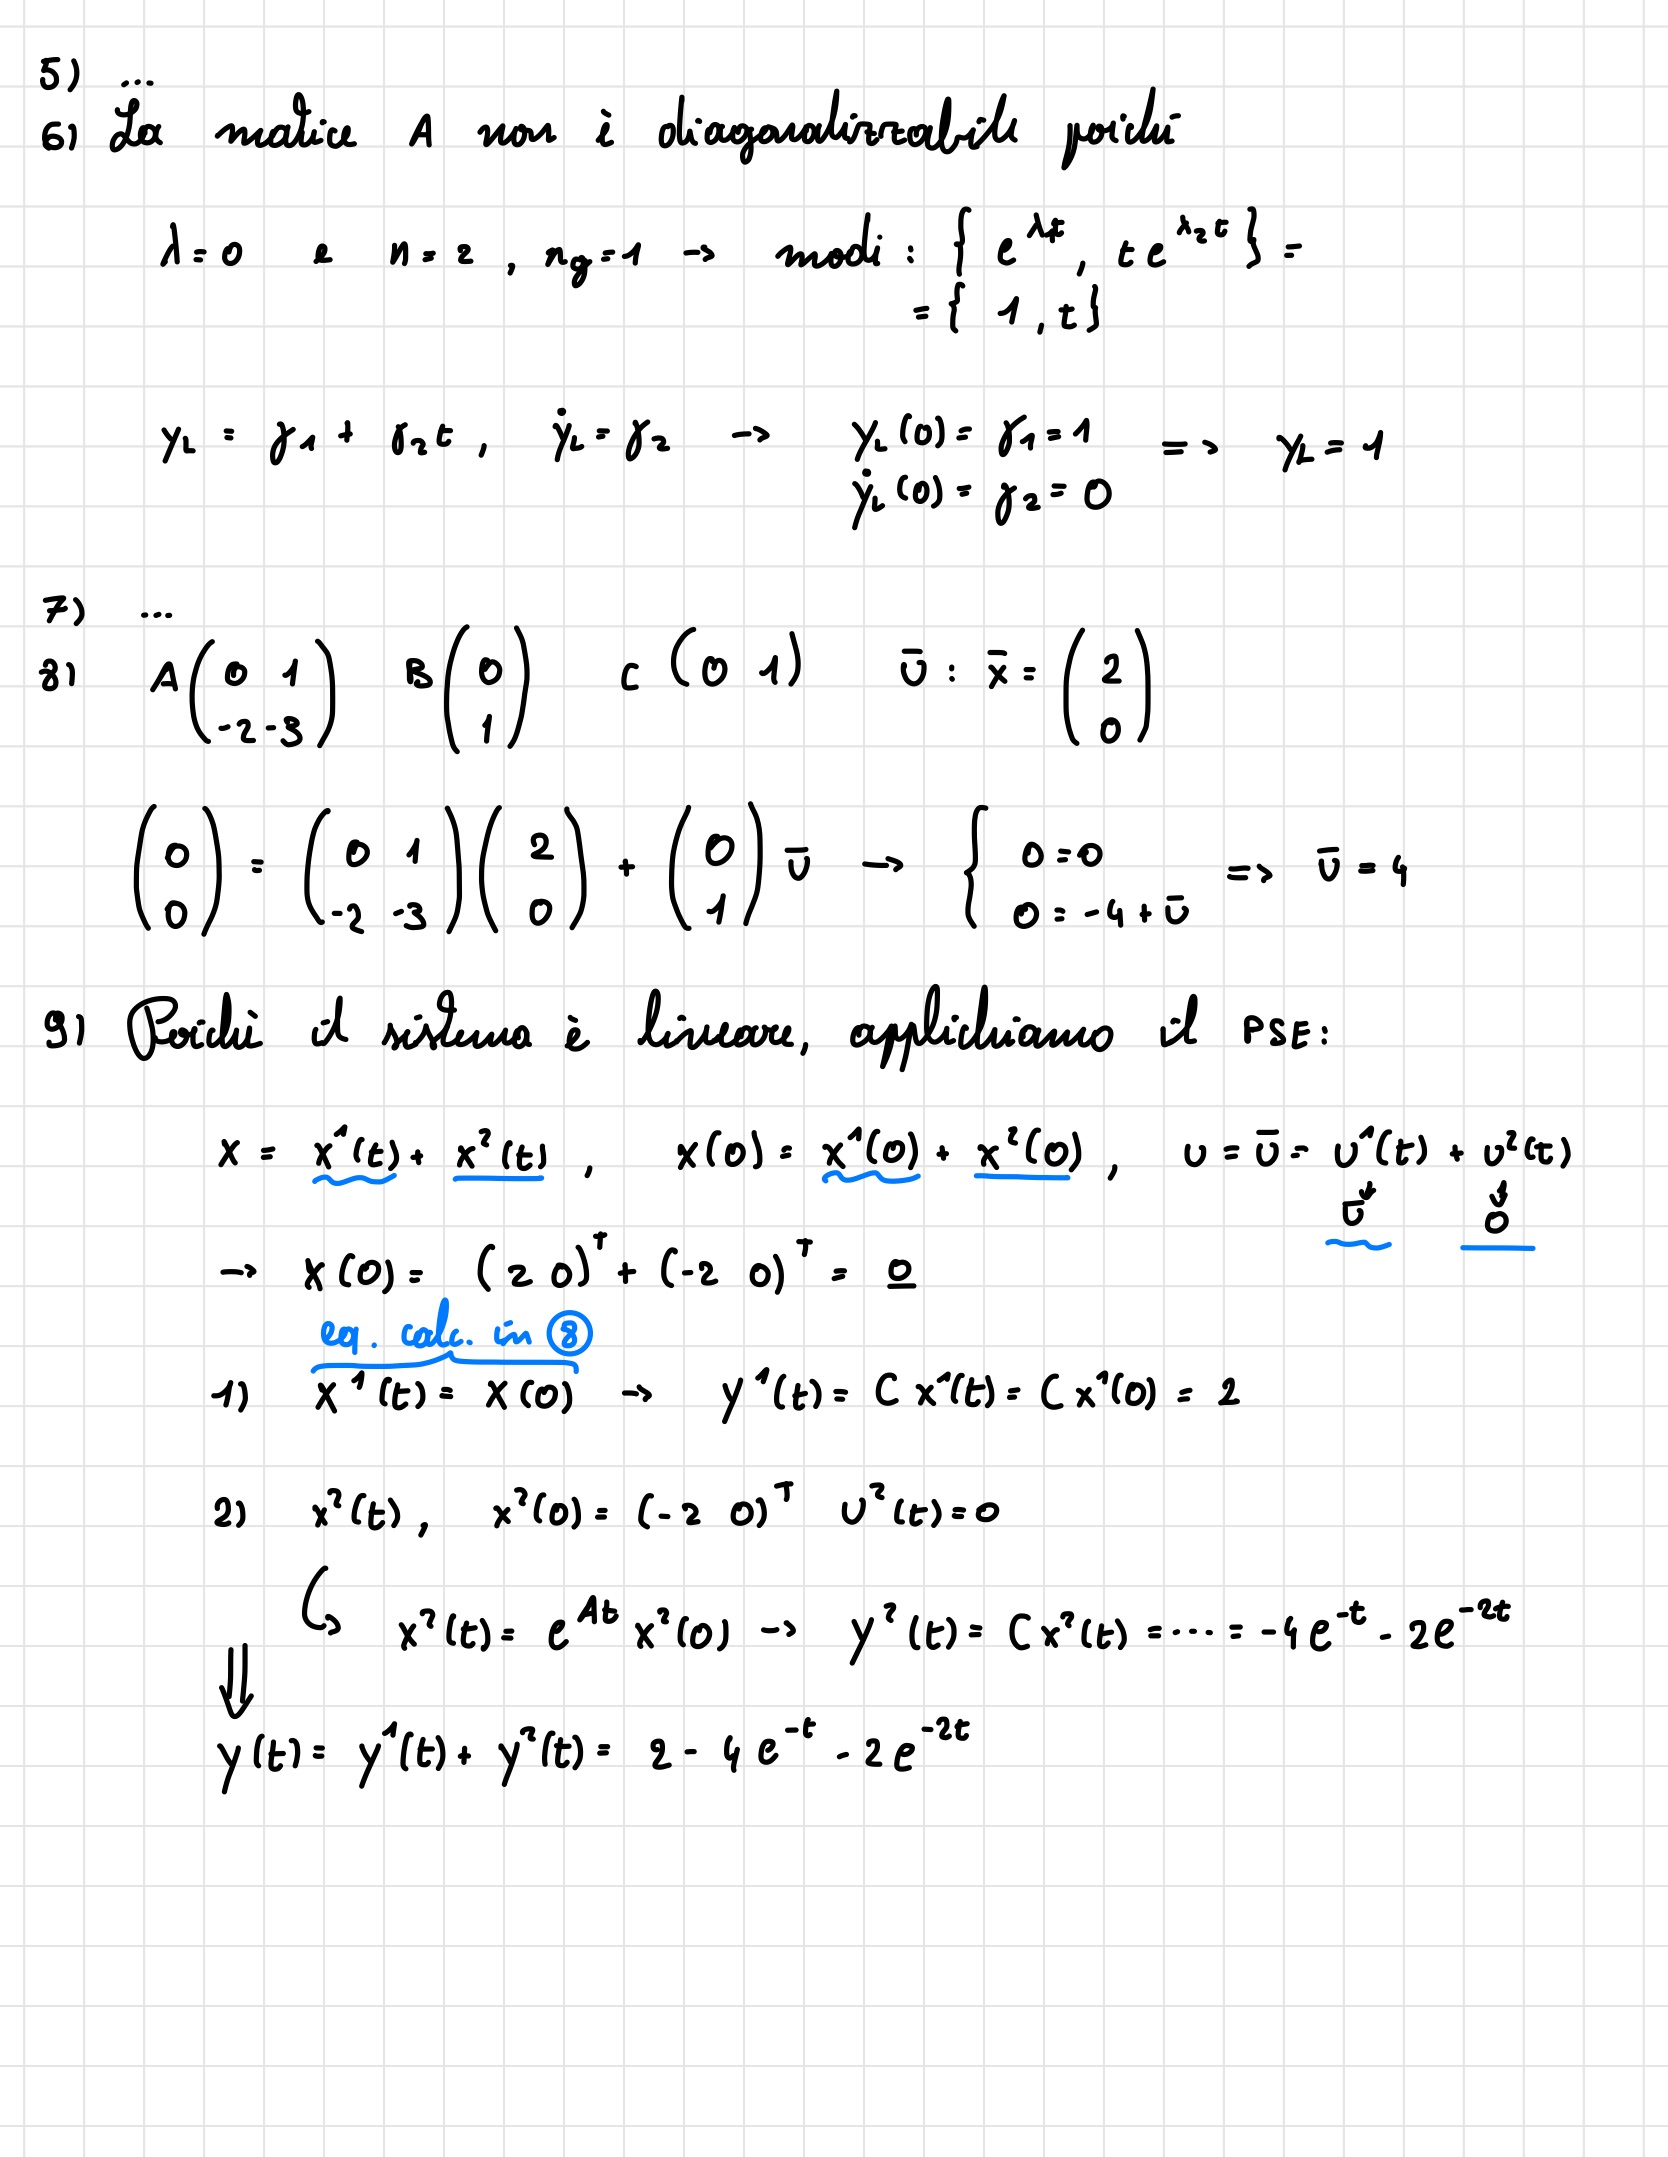 5) ...
6) La matrice A non è diagonalizzabile poiché
λ=0 e n=2, ng=1 → modi: { e^λt, t e^λ₂t } =
= { 1, t }
y_L = γ₁ + γ₂t, ẏ_L = γ₂ → y_L(0) = γ₁ = 1 => y_L = 1
ẏ_L(0) = γ₂ = 0
7) ...
8) A (0 1; -2 -3) B (0; 1) C (0 1) ū : x̄ = (2; 0)
(0; 0) = (0 1; -2 -3) (2; 0) + (0; 1) ū → { 0=0; 0=-4+ū => ū = 4
9) Poiché il sistema è lineare, applichiamo il PSE:
x = x¹(t) + x²(t), x(0) = x¹(0) + x²(0), u = ū = u¹(t) + u²(t)
ū 0
→ x(0) = (2 0)^T + (-2 0)^T = 0
eq. calc. in 8
1) x¹(t) = x(0) → y¹(t) = C x¹(t) = C x¹(0) = 2
2) x²(t), x²(0) = (-2 0)^T u²(t) = 0
↳ x²(t) = e^At x²(0) → y²(t) = C x²(t) = ... = -4e^-t - 2e^-2t
⇓
y(t) = y¹(t) + y²(t) = 2 - 4e^-t - 2e^-2t